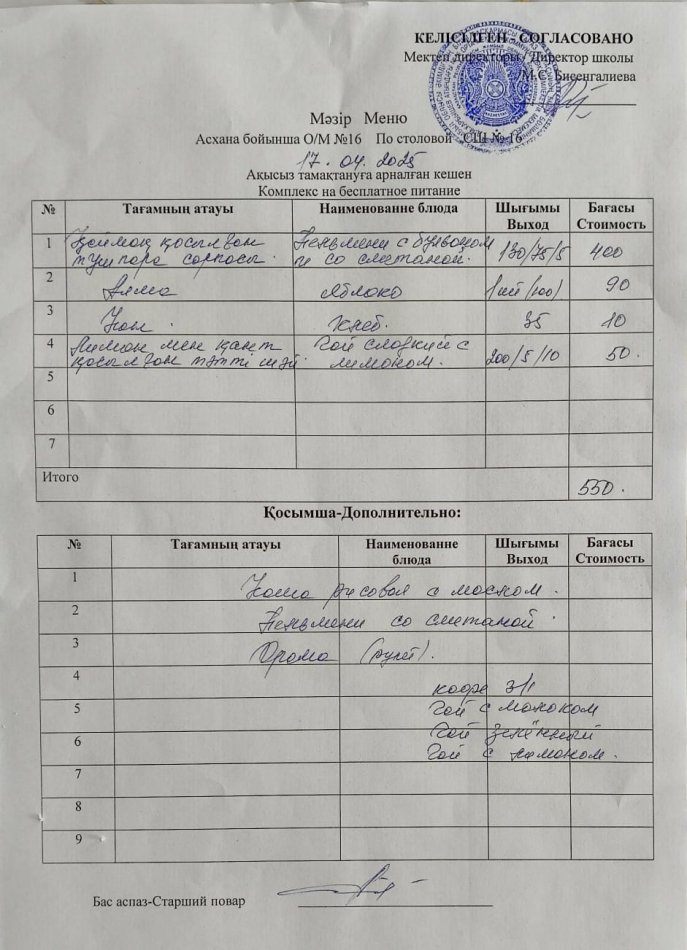 КЕЛІСІЛГЕН - СОГЛАСОВАНО
Мектеп директоры / Директор школы
М.С. Бисенгалиева
Мәзір Меню
Асхана бойынша О/М №16 По столовой СШ № 16
17.04.2025
Ақысыз тамақтануға арналған кешен
Комплекс на бесплатное питание
№ Тағамның атауы Наименование блюда Шығымы Выход Бағасы Стоимость
1 Қаймақ қосылған тұшпара сорпасы. Пельмени с бульоном и со сметаной. 130/75/5 400
2 Алма Яблоко 1шт (100) 90
3 Нан. Хлеб. 35 10
4 Лимон мен қант қосылған тәтті шәй. Чай сладкий с лимоном. 200/5/10 50.
5
6
7
Итого 550.
Қосымша-Дополнительно:
№ Тағамның атауы Наименование блюда Шығымы Выход Бағасы Стоимость
1 Каша рисовая с маслом.
2 Пельмени со сметаной.
3 Орама (рулет).
4 кофе 3/1
5 Чай с молоком
Чай зелёный
6 Чай с лимоном.
7
8
9
Бас аспаз-Старший повар